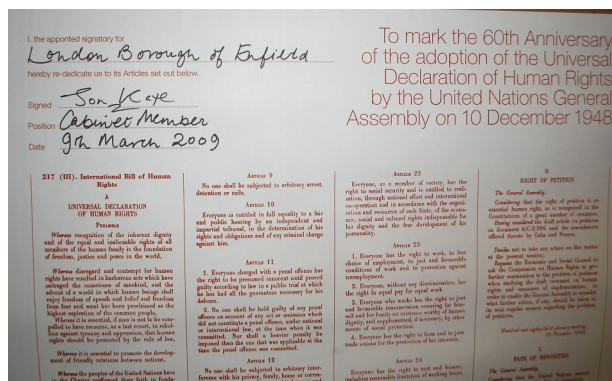 I, the appointed signatory for
London Borough of Enfield
hereby re-dedicate us to its Articles set out below.
Signed Jon Kaye
Position Cabinet Member
Date 9th March 2009
To mark the 60th Anniversary
of the adoption of the Universal
Declaration of Human Rights
by the United Nations General
Assembly on 10 December 1948
217 (III). International Bill of Human
Rights
A
UNIVERSAL DECLARATION
OF HUMAN RIGHTS
PREAMBLE
Whereas recognition of the inherent dignity
and of the equal and inalienable rights of all
members of the human family is the foundation
of freedom, justice and peace in the world,
Whereas disregard and contempt for human
rights have resulted in barbarous acts which have
outraged the conscience of mankind, and the
advent of a world in which human beings shall
enjoy freedom of speech and belief and freedom
from fear and want has been proclaimed as the
highest aspiration of the common people,
Whereas it is essential, if man is not to be com-
pelled to have recourse, as a last resort, to rebel-
lion against tyranny and oppression, that human
rights should be protected by the rule of law,
Whereas it is essential to promote the develop-
ment of friendly relations between nations,
Whereas the peoples of the United Nations have
ARTICLE 9
No one shall be subjected to arbitrary arrest,
detention or exile.
ARTICLE 10
Everyone is entitled in full equality to a fair
and public hearing by an independent and
impartial tribunal, in the determination of his
rights and obligations and of any criminal charge
against him.
ARTICLE 11
1. Everyone charged with a penal offence has
the right to be presumed innocent until proved
guilty according to law in a public trial at which
he has had all the guarantees necessary for his
defence.
2. No one shall be held guilty of any penal
offence on account of any act or omission which
did not constitute a penal offence, under national
or international law, at the time when it was
committed. Nor shall a heavier penalty be
imposed than the one that was applicable at the
time the penal offence was committed.
ARTICLE 12
No one shall be subjected to arbitrary inter-
ference with his privacy, family, home or corre-
ARTICLE 22
Everyone, as a member of society, has the
right to social security and is entitled to reali-
zation, through national effort and international
co-operation and in accordance with the organi-
zation and resources of each State, of the econo-
mic, social and cultural rights indispensable for
his dignity and the free development of his
personality.
ARTICLE 23
1. Everyone has the right to work, to free
choice of employment, to just and favourable
conditions of work and to protection against
unemployment.
2. Everyone, without any discrimination, has
the right to equal pay for equal work.
3. Everyone who works has the right to just
and favourable remuneration ensuring for him-
self and his family an existence worthy of human
dignity, and supplemented, if necessary, by other
means of social protection.
4. Everyone has the right to form and to join
trade unions for the protection of his interests.
ARTICLE 24
Everyone has the right to rest and leisure,
including reasonable limitation of working hours
B
RIGHT OF PETITION
The General Assembly,
Considering that the right of petition is an
essential human right, as is recognized in the
Constitutions of a great number of countries,
Having considered the draft article on petitions
in document A/C.3/306 and the amendments
offered thereto by Cuba and France,
Decides not to take any action on this matter
at the present session;
Requests the Economic and Social Council to
ask the Commission on Human Rights to give
further examination to the problem of petitions
when studying the draft covenant on human
rights and measures of implementation, in
order to enable the General Assembly to consider
what further action, if any, should be taken at
its next regular session regarding the problem
of petitions.
C
FATE OF MINORITIES
The General Assembly,